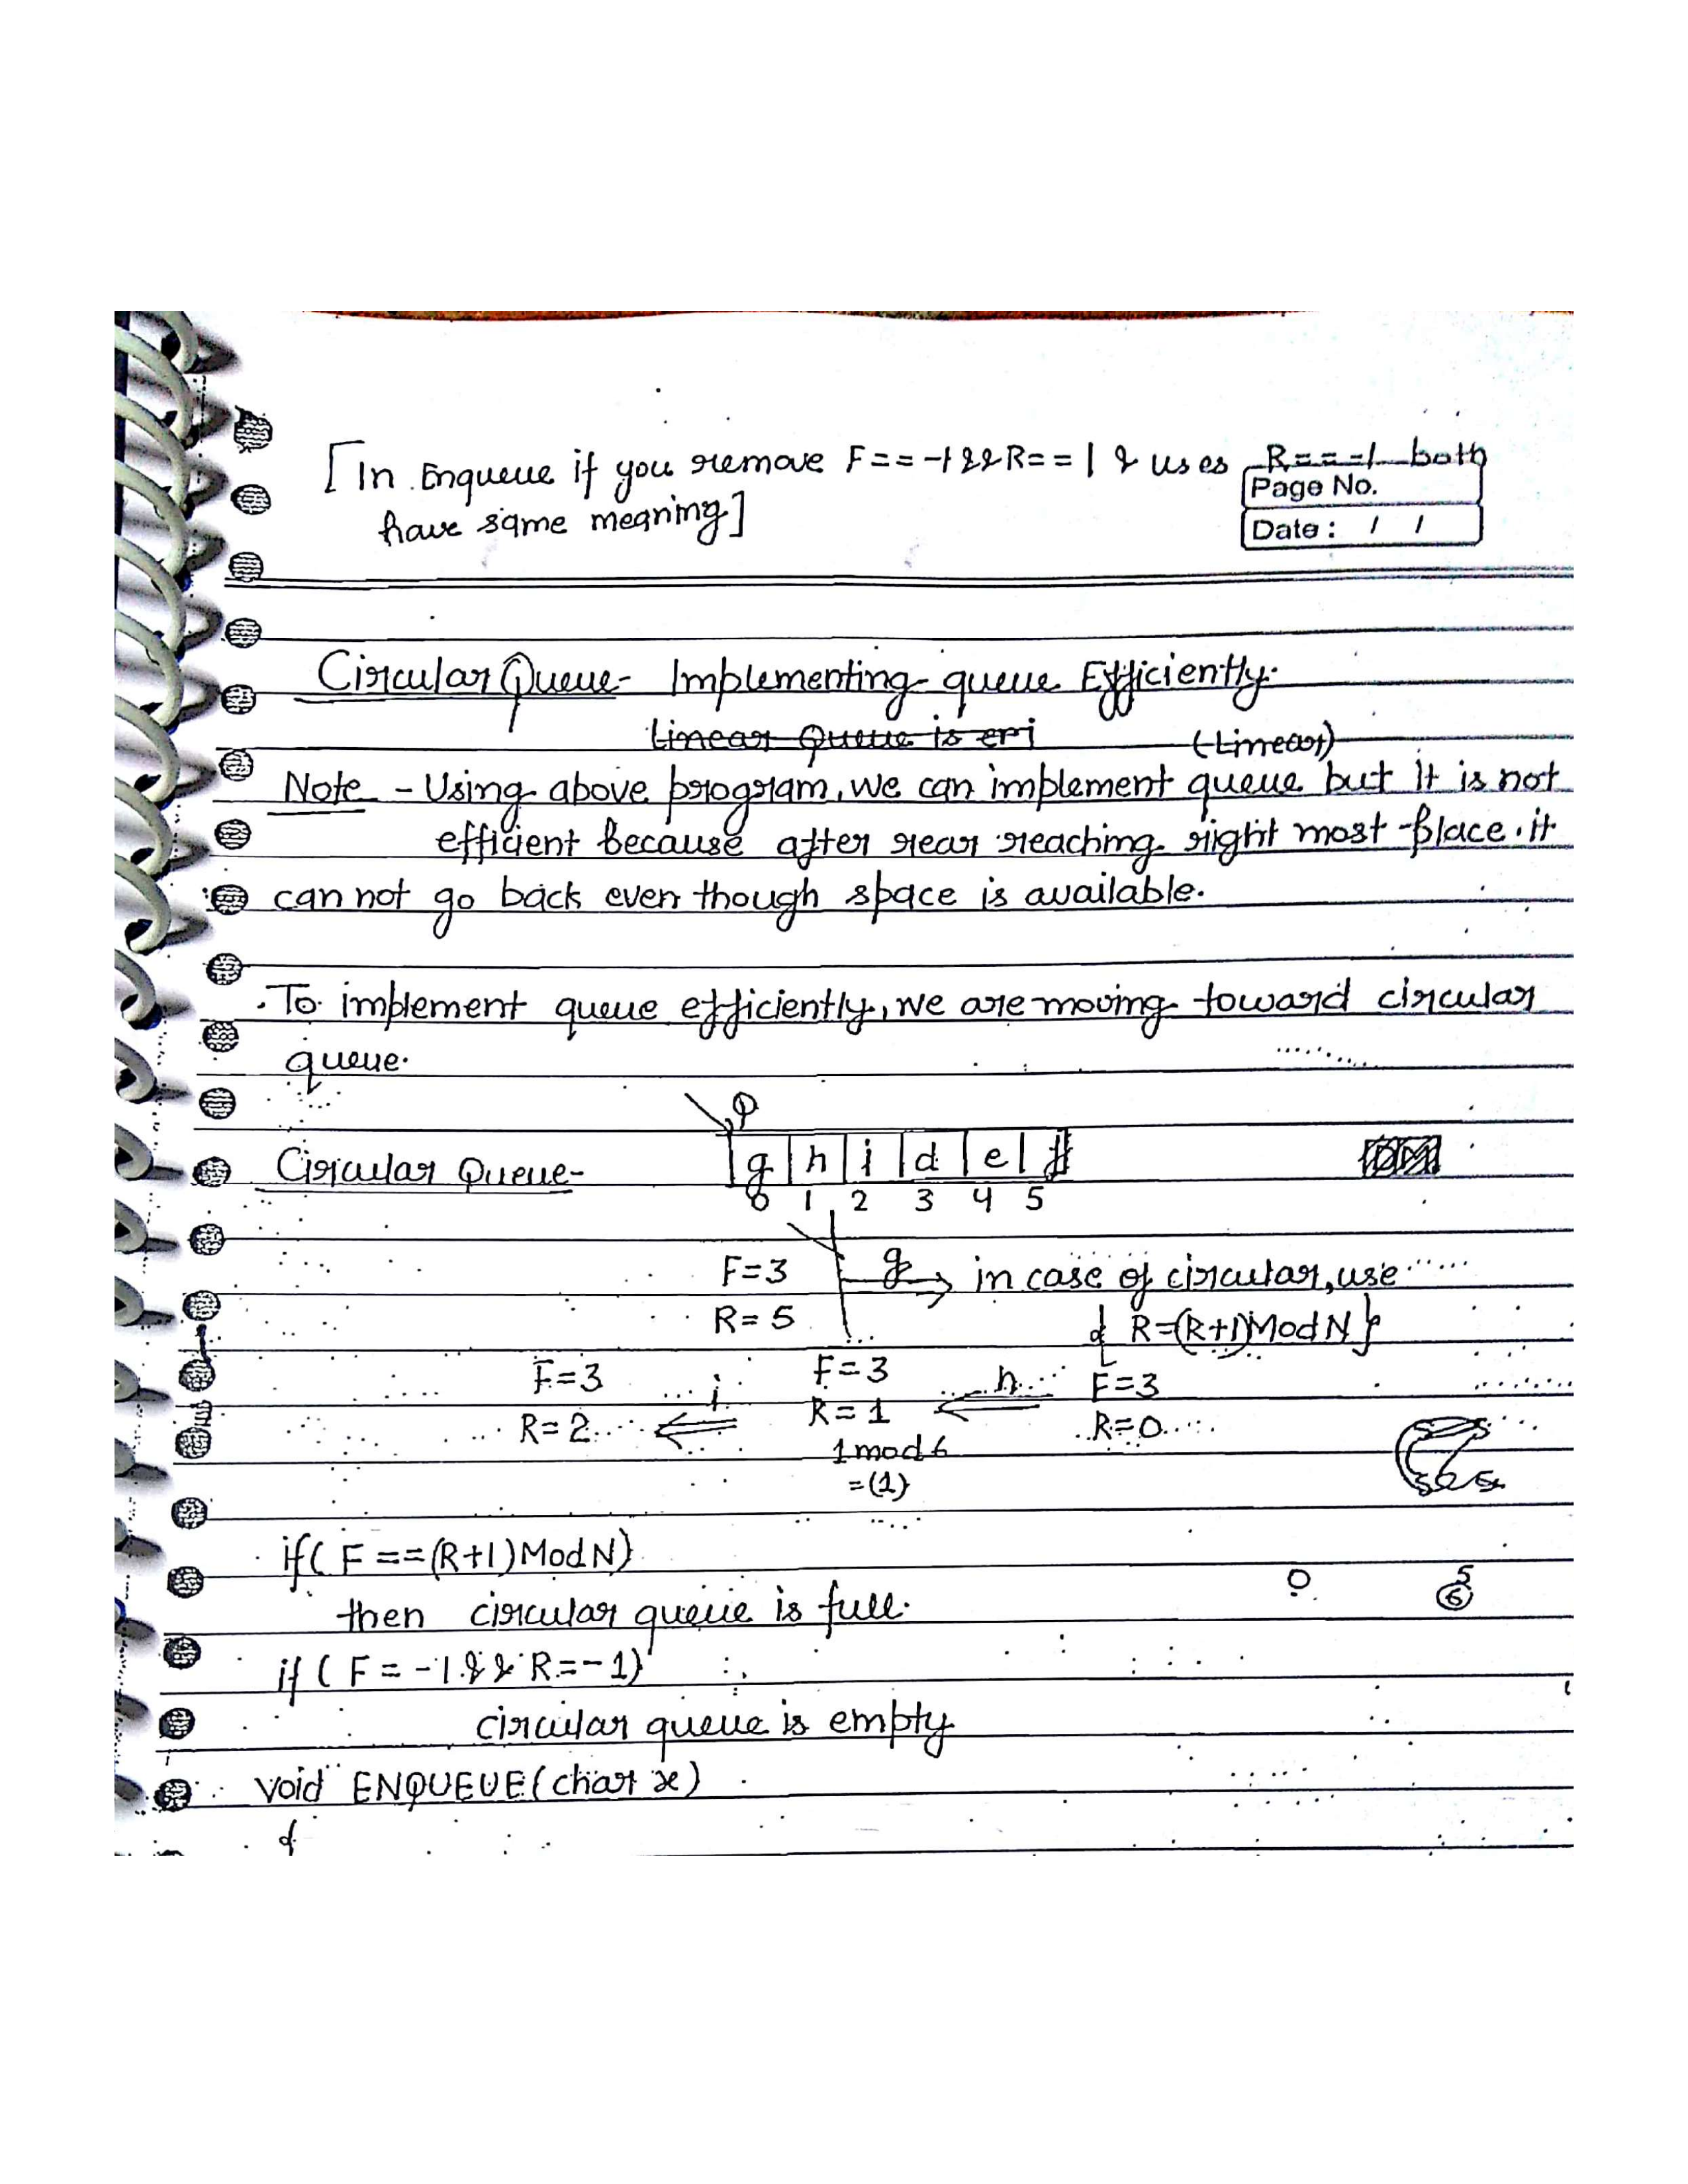 [In Enqueue if you remove F==-1&&R==1 & uses R==-1 both
Page No.
have same meaning]
Date : / /
Circular Queue- Implementing queue Efficiently.
Linear Queue is eri (Linear)
Note - Using above program, we can implement queue but it is not
efficient because after rear reaching right most place. it
can not go back even though space is available.
. To implement queue efficiently, we are moving toward circular
queue.
Q
Circular Queue- g h i d e f
0 1 2 3 4 5
F=3 g in case of circular, use
R=5 { R=(R+1)Mod N }
F=3 i F=3 h F=3
R=2 R=1 R=0
1 mod 6
=(1)
if( F ==(R+1)Mod N)
0 5
6
then circular queue is full.
if ( F = -1 && R=-1)
circular queue is empty
void ENQUEUE(char x)
{